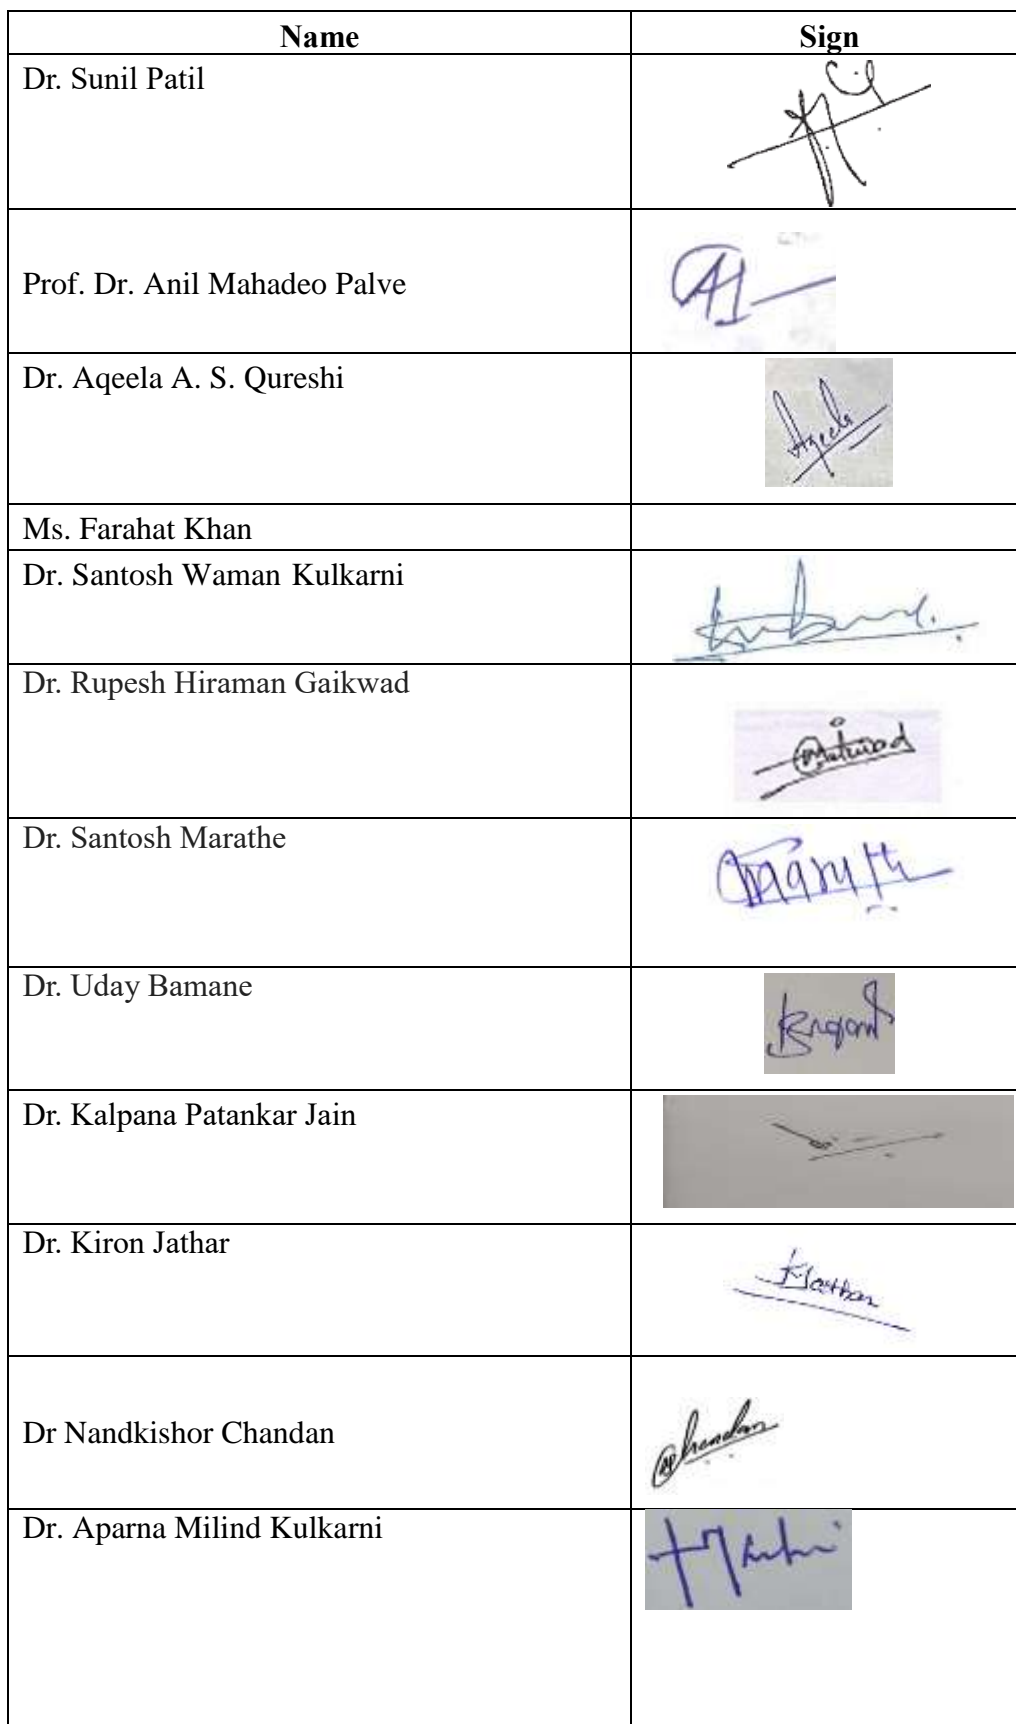 Name Sign
Dr. Sunil Patil
Prof. Dr. Anil Mahadeo Palve
Dr. Aqeela A. S. Qureshi
Aqeela
Ms. Farahat Khan
Dr. Santosh Waman Kulkarni
Dr. Rupesh Hiraman Gaikwad
Dr. Santosh Marathe
Dr. Uday Bamane
Dr. Kalpana Patankar Jain
Dr. Kiron Jathar
KJathar
Dr Nandkishor Chandan
Chandan
Dr. Aparna Milind Kulkarni